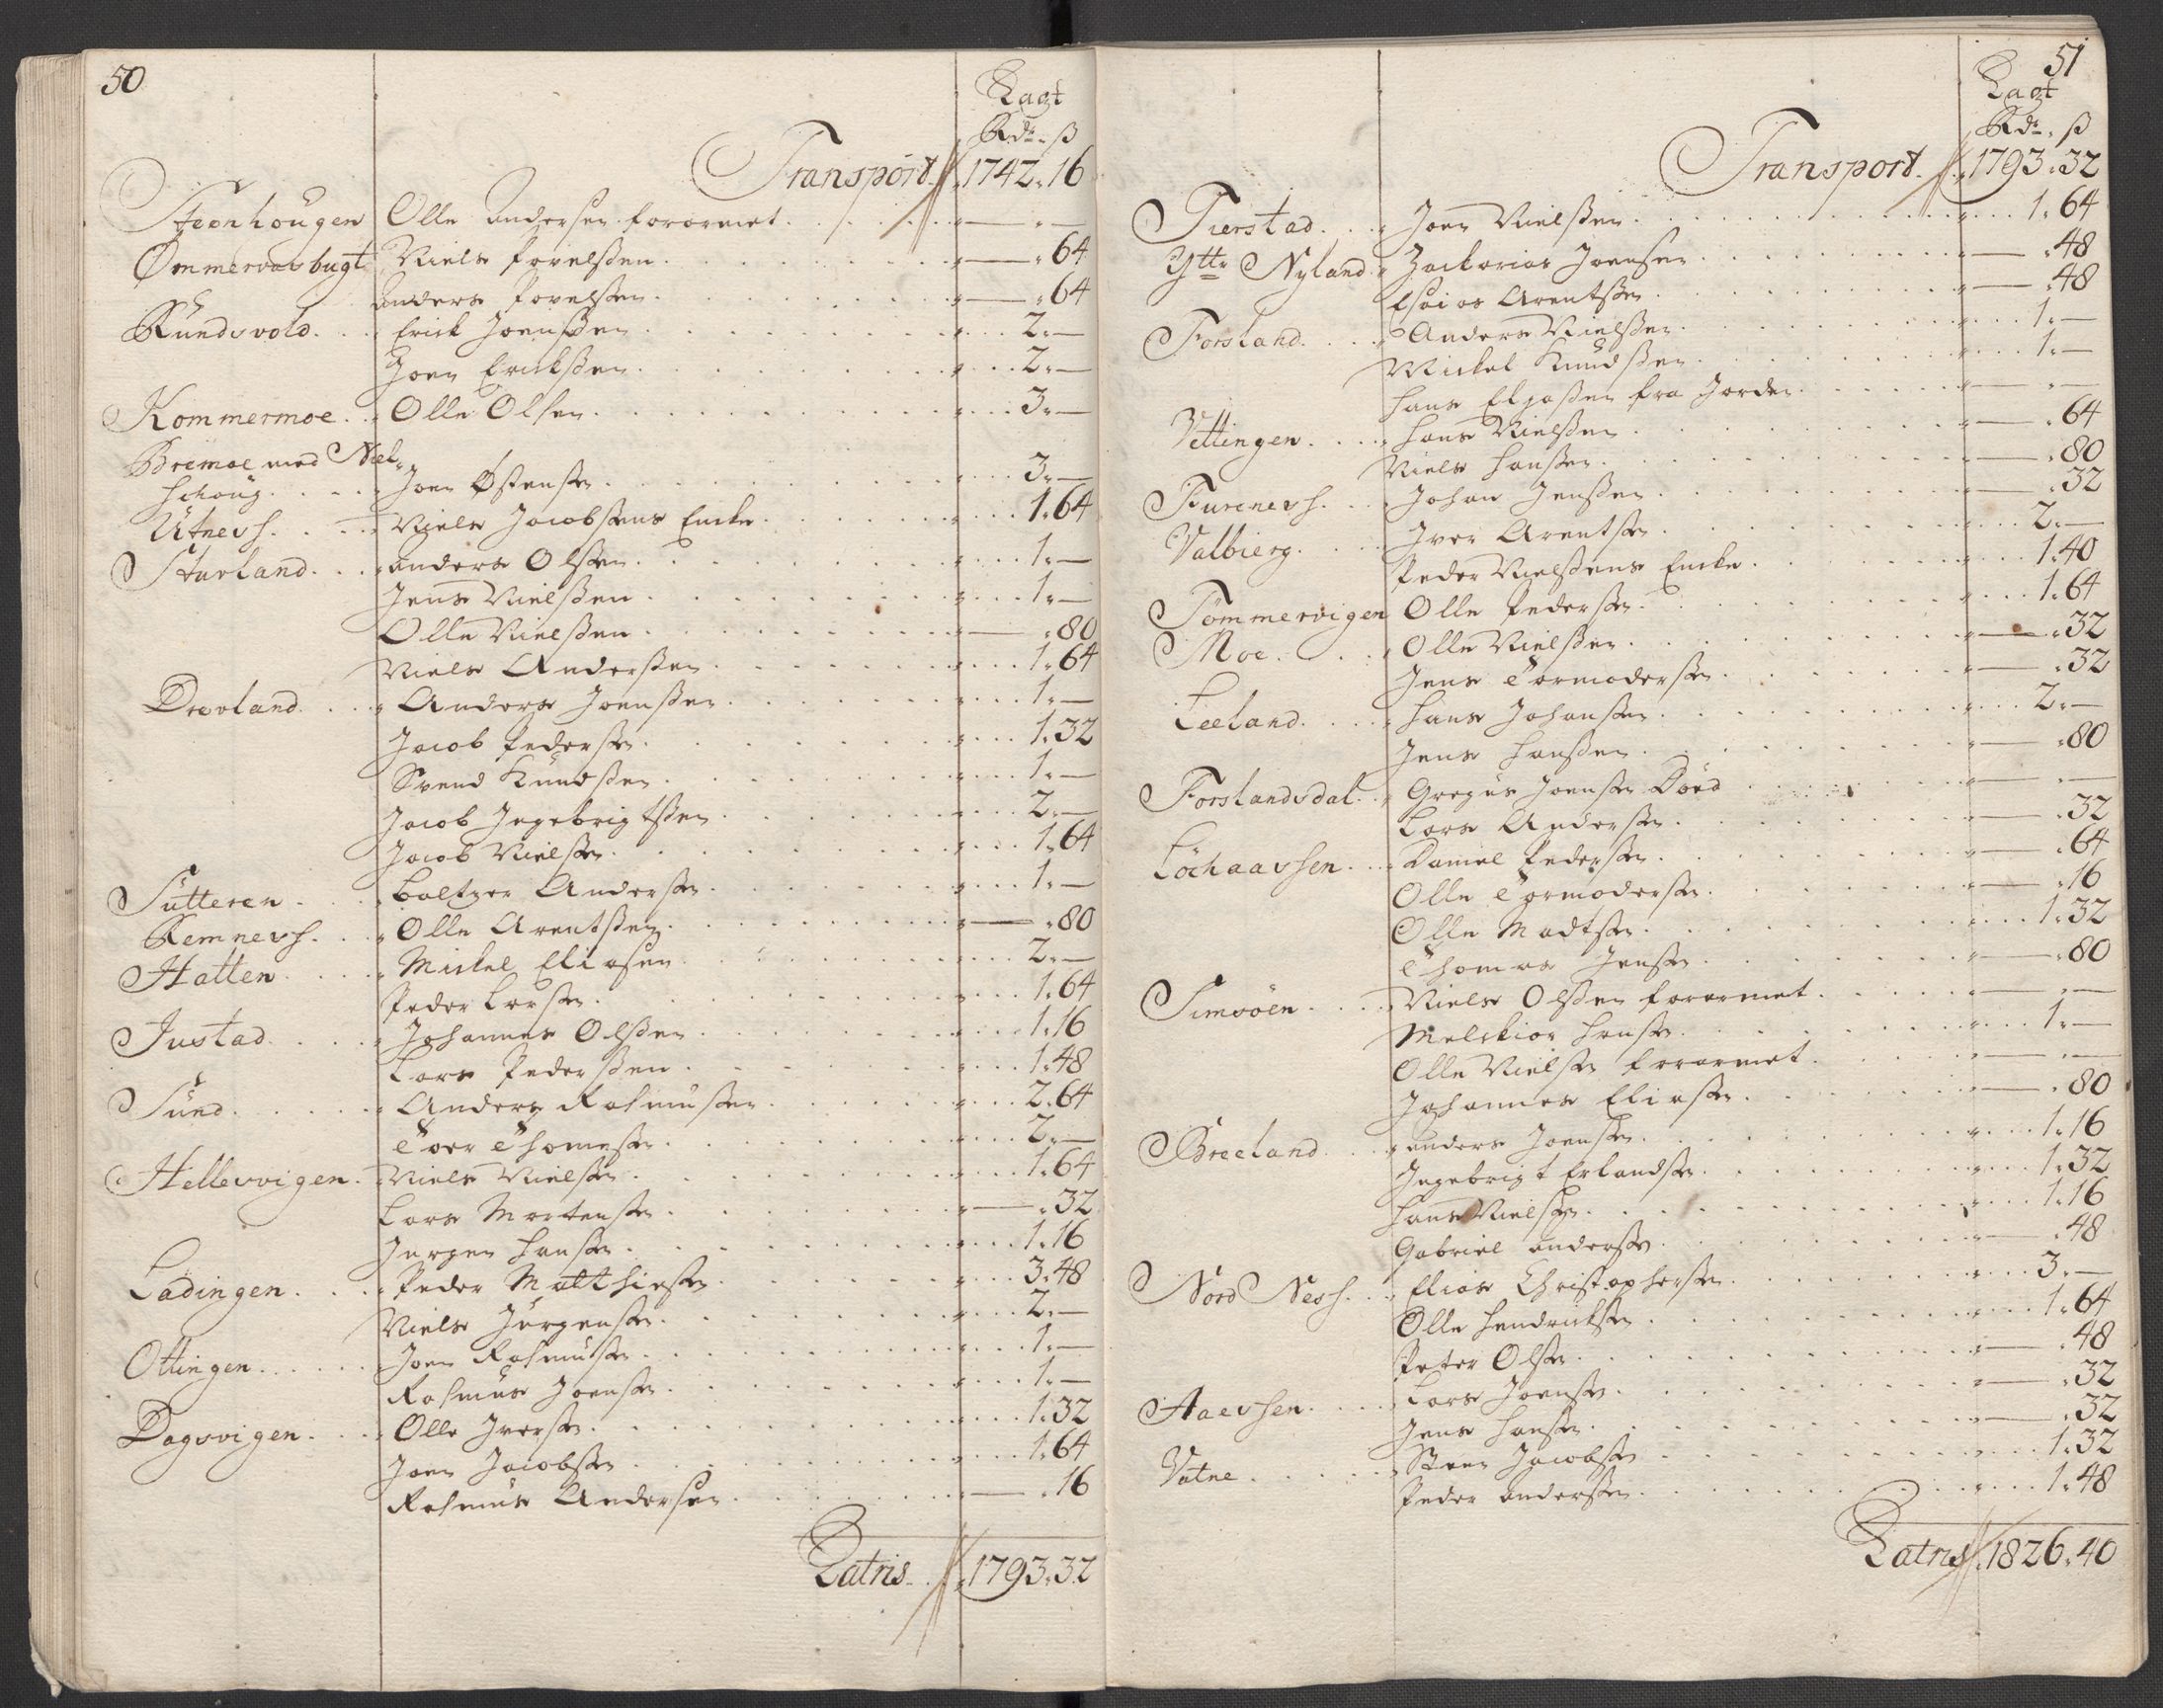 50
Lagt
Rdr. ß
Transport. 1742. 16
Steenhougen Olle Andersen forarmet — —
Ømmervasbugt Niels Povelßen — 64
Anders Povelßen — 64
Rundsvold. Erick Joenßen 2. —
Joen Erickßen 2. —
Kommermoe. Olle Olsen 3. —
Bremoe med Niel
schoug. Joen Østenßen 3. —
Utnesh. Niels Jacobßens Encke 1. 64
Sturland. Anders Olßen 1. —
Jens Nielßen 1. —
Olle Nielßen — 80
Niels Anderßen 1. 64
Drevland. Anders Joenßen 1. —
Jacob Pederßen 1. 32
Svend Knudßen 1. —
Jacob Ingebrigtßen 2. —
Jacob Nielßen 1. 64
Sutteren. Baltzer Anderßen 1. —
Remnesh. Olle Arentßen — 80
Hatten. Mickel Eliasen 2. —
Peder Larßen 1. 64
Justad. Johannes Olßen 1. 16
Lars Pederßen 1. 48
Sund. Anders Rasmußen 2. 64
Toer Thomeßen 2. —
Hellesvigen. Niels Nielßen 1. 64
Lars Mortenßen — 32
Jurgen Hanßen 1. 16
Ladingen. Peder Matthießen 3. 48
Niels Jurgenßen 2. —
Ottingen. Joen Rasmußen 1. —
Rasmus Joenßen 1. —
Dagsvigen. Olle Iverßen 1. 32
Joen Jacobßen 1. 64
Rasmus Andersen — 16
Latris. 1793. 32
51
Lagt
Rdr. ß
Transport. 1793. 32
Tierstad. Joen Nielßen 1. 64
Yttr Nyland. Zacharias Joensen — 48
Esaias Arentßen — 48
Forsland. Anders Nielßen 1. —
Mickel Knudßen 1. —
Hans Eljaßen fra Jorden — —
Vettingen. Hans Nielßen — 64
Niels Hanßen — 80
Furenesh. Johan Jenßen — 32
Valbierg. Iver Arentßen 2. —
Peder Nielßens Encke 1. 40
Tømmervigen Olle Pederßen 1. 64
Moe. Olle Nielßen — 32
Jens Tormoderßen — 32
Leeland. Hans Johanßen 2. —
Jens Hanßen — 80
Forslandsdal. Gregus Joenßen Död — —
Lars Anderßen — 32
Löchaassen. Daniel Pederßen — 64
Olle Tormoderßen — 16
Olle Madtßen 1. 32
Thomas Jenßen — 80
Simsöen. Niels Olßen forarmet — —
Melchior Hanßen 1. —
Olle Nielßen forarmet — —
Johannes Eliaßen — 80
Breeland. Anders Joenßen 1. 16
Ingebrigt Erlandßen 1. 32
Hans Nielßen 1. 16
Gabriel Anderßen — 48
Nord Nesh. Elias Christopherßen 3. —
Olle Hendrickßen 1. 64
Peter Olßen — 48
Lars Joenßen — 32
Aaesshen. Jens Hanßen — 32
Vatne. Steen Jacobßen 1. 32
Peder Anderßen 1. 48
Latris 1826. 40